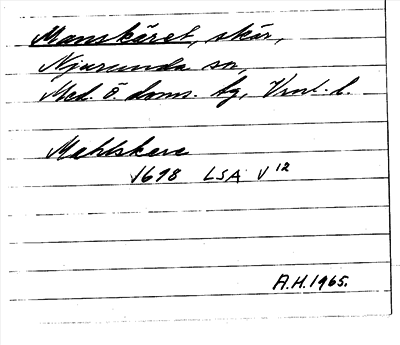 Manskäret, skär,
Njurunda sn,
Med. ö. doms. tg, Vnl. l.
Mahlskere
1698 LSA V 12
A.H. 1965.